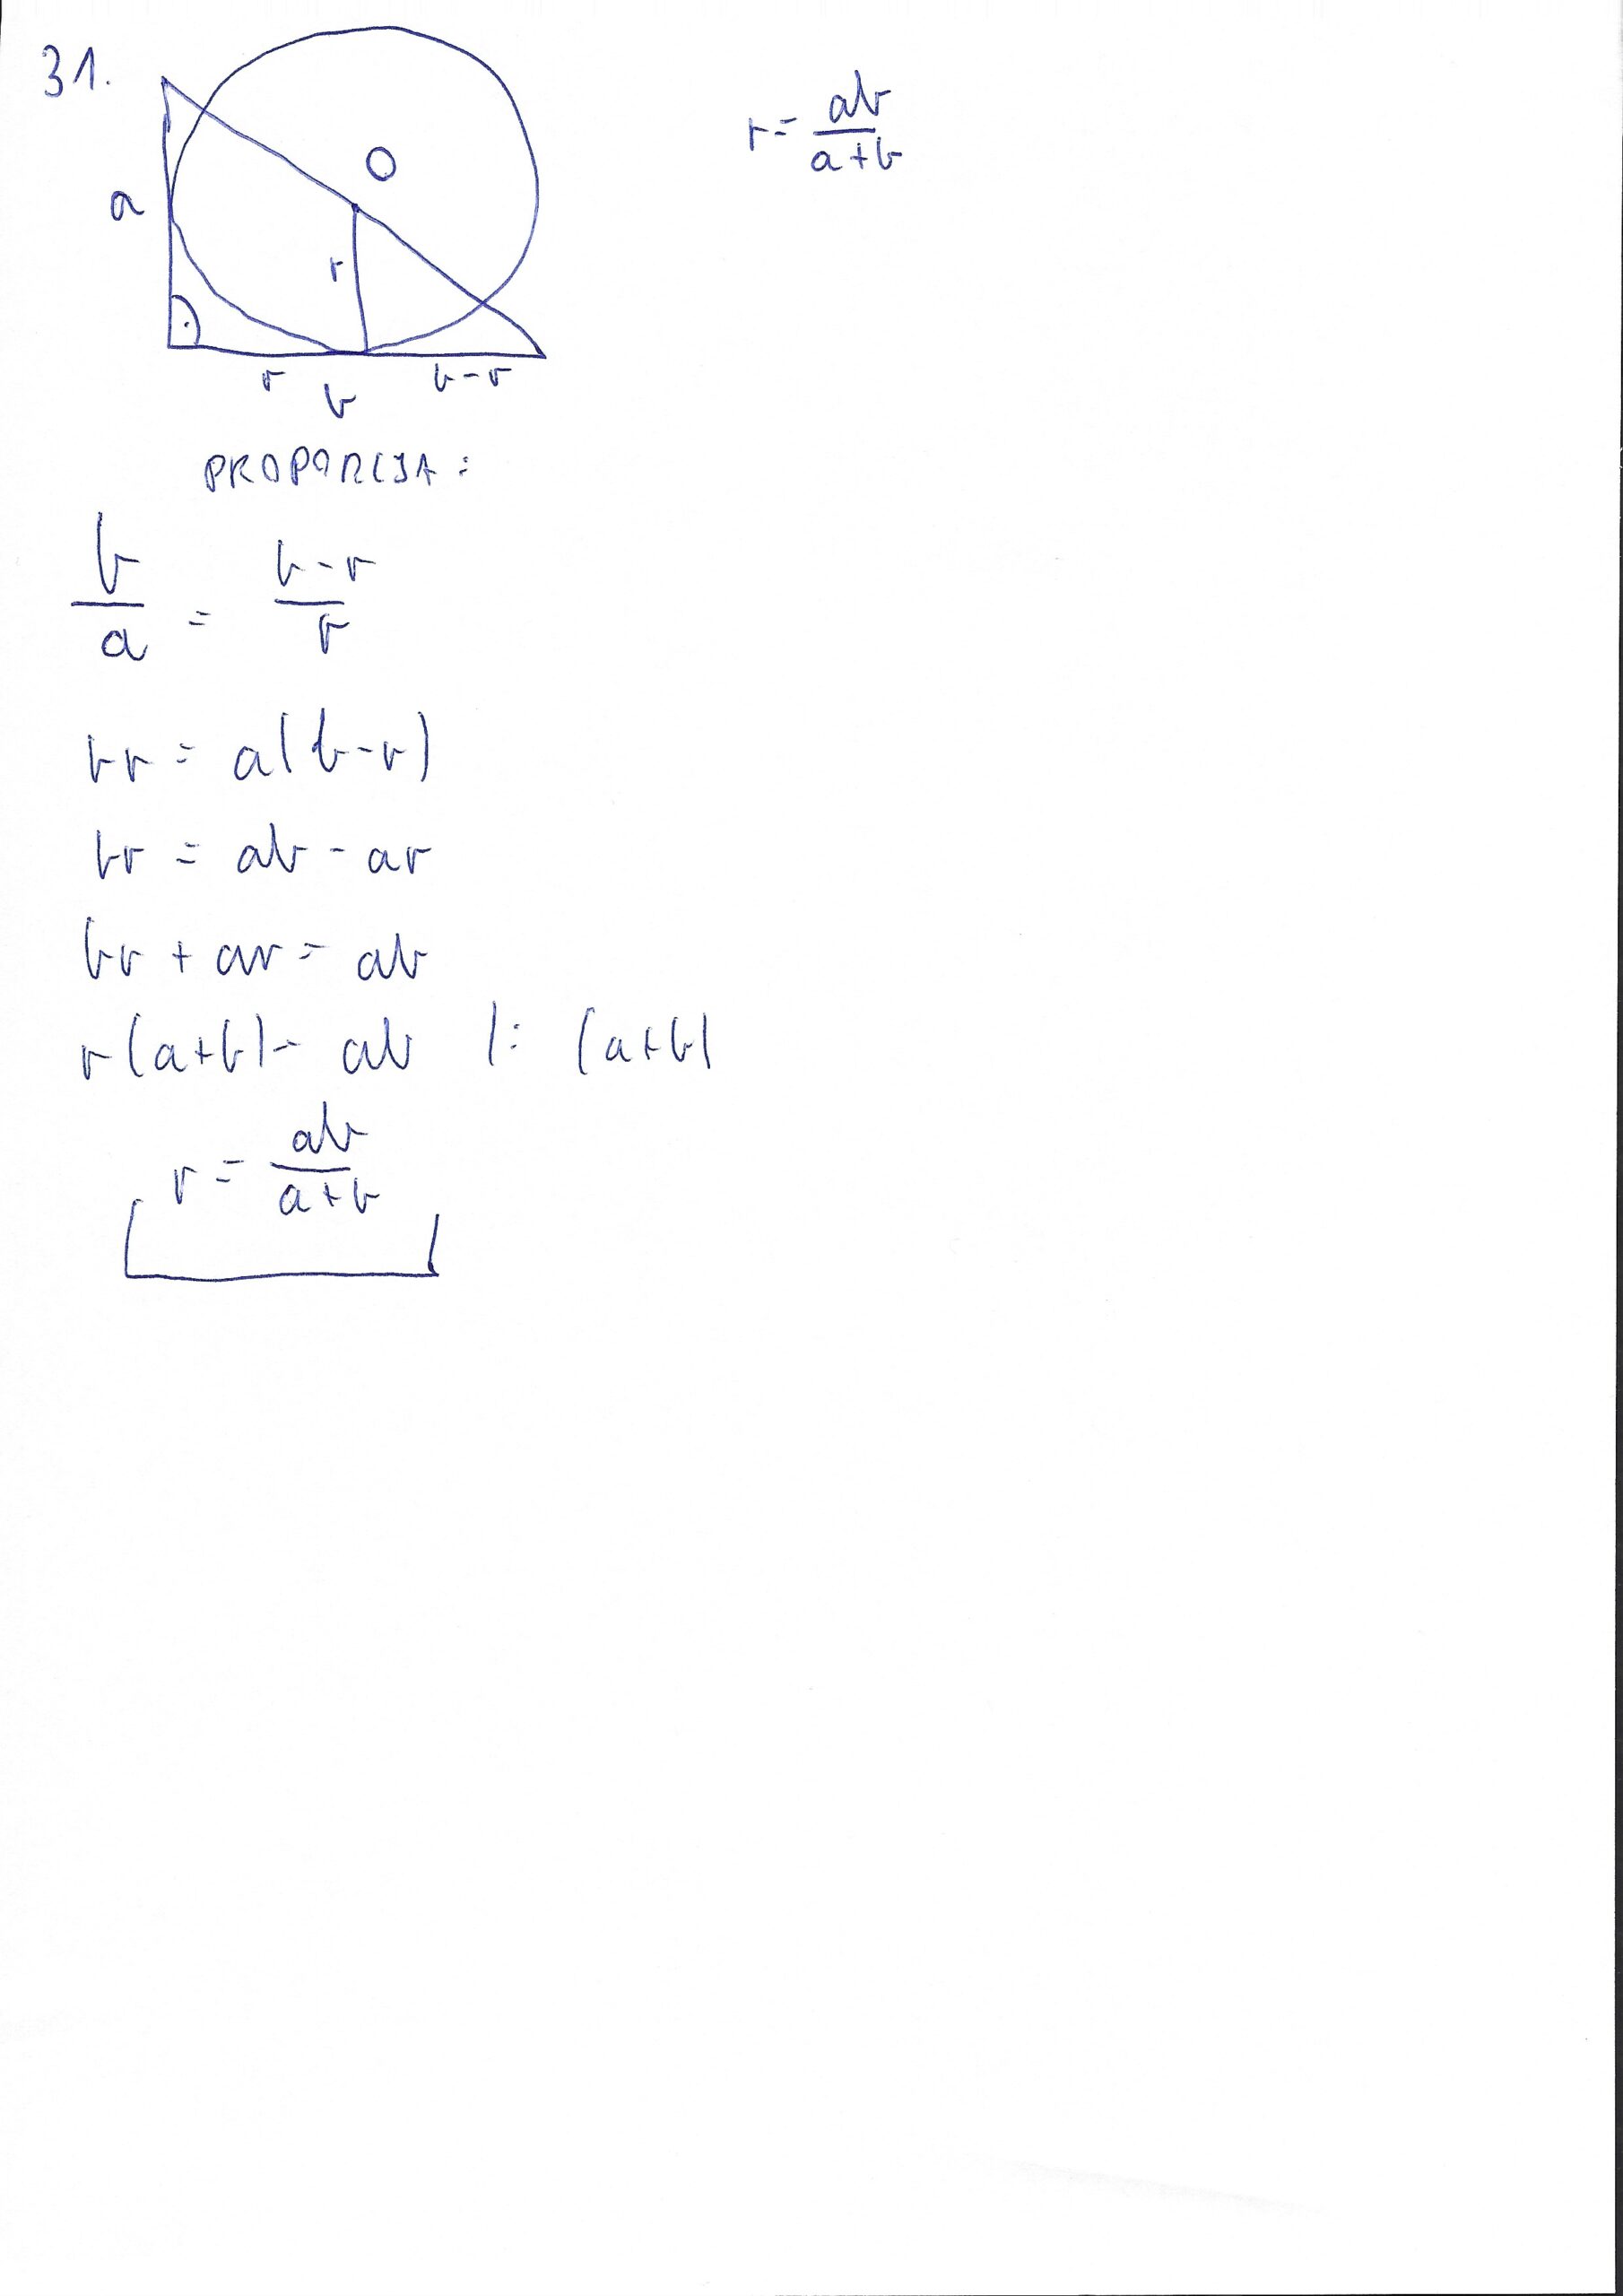 31.
r = ab / a+b
O
a
r
r b b-r
PROPORCJA:
b / a = b-r / r
br = a(b-r)
br = ab - ar
br + ar = ab
r(a+b) = ab /: (a+b)
r = ab / a+b